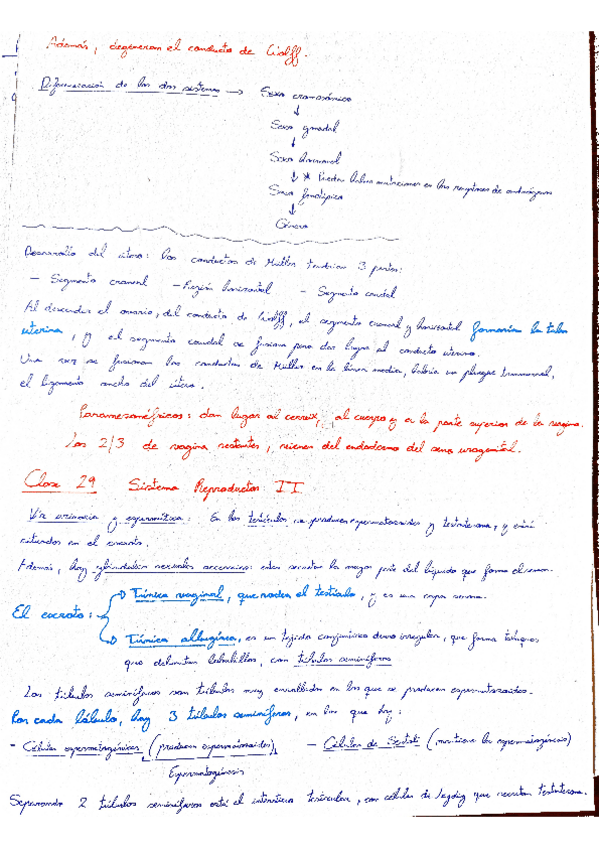 Además, degeneran el conducto de Wolff.
Diferenciación de los dos sistemas → Sexo cromosómico
↓
Sexo gonadal
↓
Sexo hormonal
↓ * Pueden haber mutaciones en los receptores de andrógenos
Sexo fenotípico
↓
Género
Desarrollo del útero: los conductos de Müller tendrían 3 partes:
- Segmento craneal - Región horizontal - Segmento caudal
Al descender el ovario, del conducto de Wolff, el segmento craneal y horizontal formarían la tuba
uterina, y el segmento caudal se fusiona para dar lugar al conducto uterino.
Una vez se fusionan los conductos de Müller en la línea media, habría un pliegue transversal,
el ligamento ancho del útero.
Paramesonéfricos: dan lugar al cérvix, al cuerpo y a la parte superior de la vagina.
Los 2/3 de vagina restantes, vienen del endodermo del seno urogenital.
Clase 29 Sistema Reproductor II
Vía urinaria y espermática: En los testículos se producen espermatozoides y testosterona, y están
situados en el escroto.
Además, hay glándulas sexuales accesorias: estas secretan la mayor parte del líquido que forma el semen.
El escroto:
Túnica vaginal, que rodea el testículo, y es una capa serosa.
Túnica albugínea, es un tejido conjuntivo denso irregular, que forma tabiques
que delimitan lobulillos, con túbulos seminíferos
Los túbulos seminíferos son túbulos muy enrollados en los que se producen espermatozoides.
Por cada lóbulo, hay 3 túbulos seminíferos, en los que hay:
- Células espermatogénicas (producen espermatozoides) - Células de Sertoli (mantienen la espermatogénesis)
Espermatogénesis
Separando 2 túbulos seminíferos está el intersticio testicular, con células de Leydig que secretan testosterona.